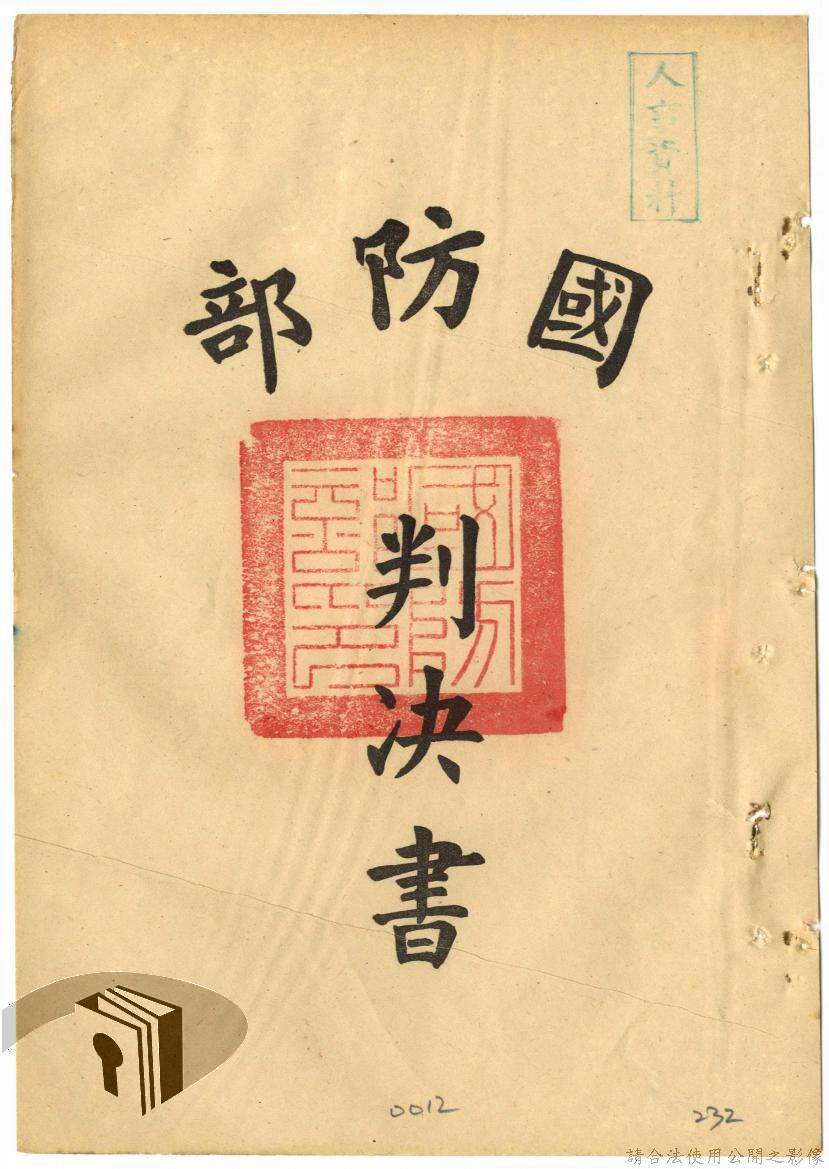 人事資料
國防部
判決書
0012
232
請合法使用公開之影像